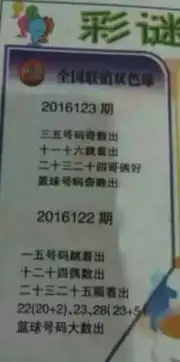 彩谜
全国联销双色球
2016123期
三五号码奇数出
十一十六跳着出
二十三二十四哥俩好
篮球号码奇数出
2016122期
一五号码跳着出
十二十四偶数出
二十三二十五隔着出
22(20+2)、23、28(23+5
篮球号码大数出